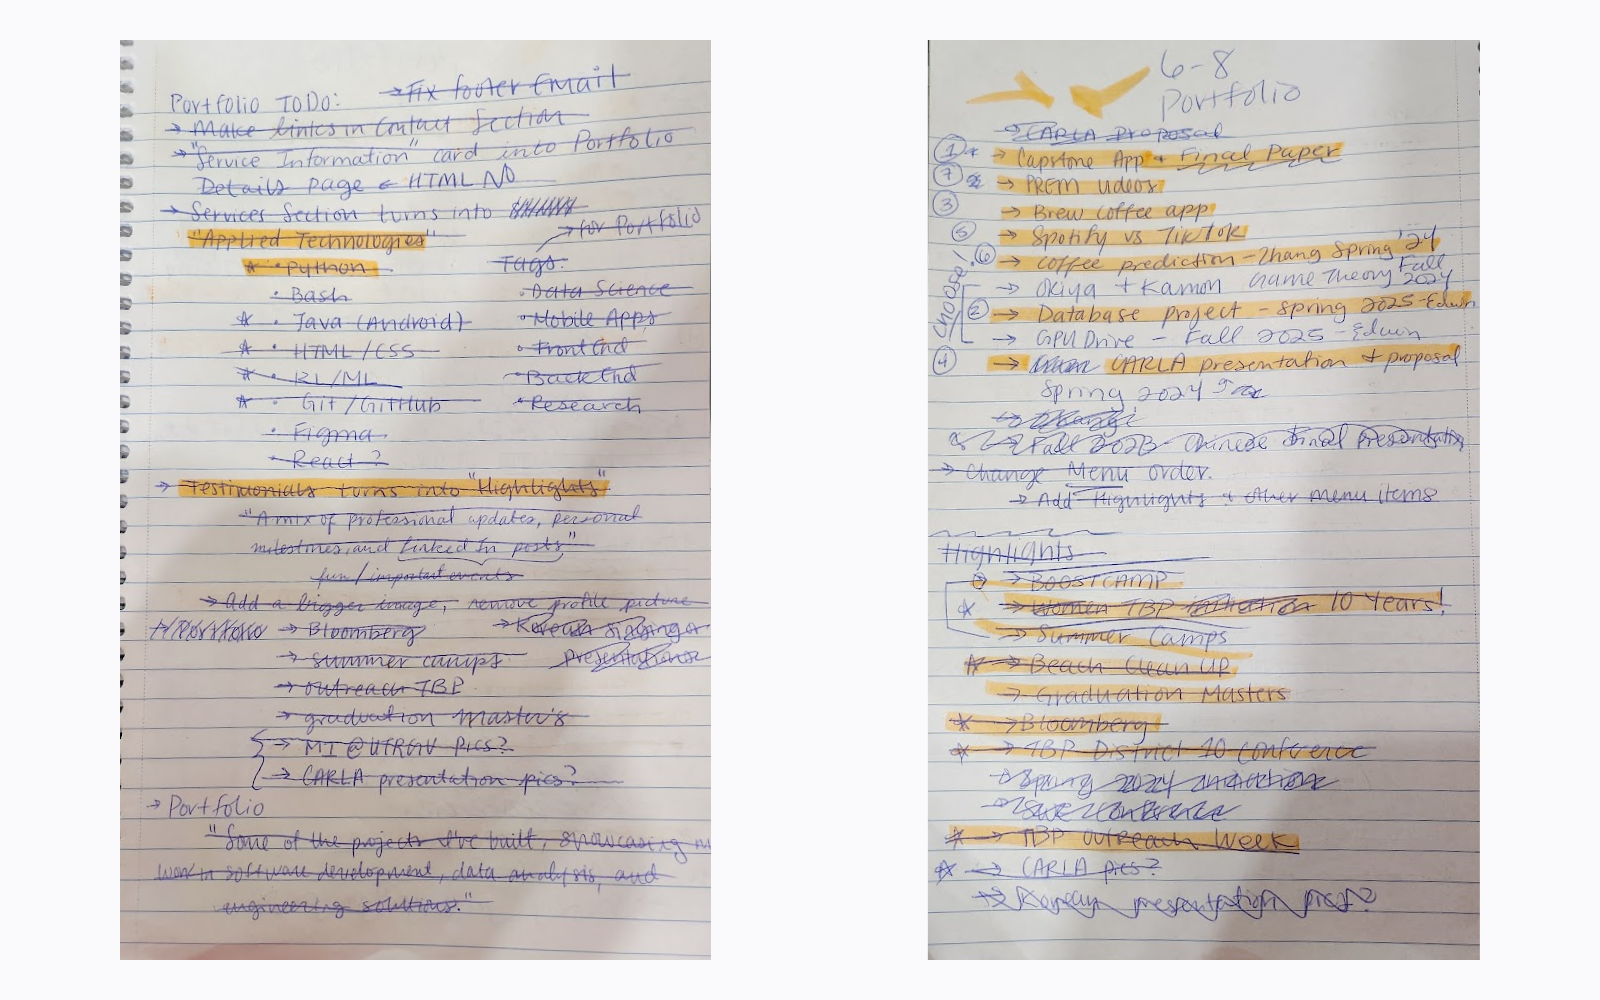 Portfolio ToDo: → Fix footer Email
→ Make links in Contact Section
→ "Service Information" card into Portfolio
Details page ← HTML
→ Services Section turns into
"Applied Technologies"
→ for Portfolio
* • Python
Tags:
• Bash
• Data Science
* • Java (Android)
• Mobile Apps
* • HTML/CSS
• Front End
* • RL/ML
• Back End
* • Git/GitHub
• Research
• Figma
• React?
→ Testimonials turns into "Highlights"
"A mix of professional updates, personal
milestones, and LinkedIn posts"
fun/important events
→ Add a bigger image, remove profile picture
→ Bloomberg → Korean
→ summer camps presentations
→ outreach TBP
→ graduation master's
→ MI @ UTRGV pics?
→ CARLA presentation pics?
→ Portfolio
"Some of the projects I've built, showcasing
work in software development, data analysis, and
engineering solutions."
6-8
Portfolio
→ CARLA Proposal
① * → Capstone App + Final Paper
⑦ → PREM videos
③ → Brew coffee app
⑤ → Spotify vs TikTok
⑥ → coffee prediction - Zhang Spring '24
→ Okiya + Kamon Game Theory Fall 2024
choose!
② → Database project - spring 2025 - Edwin
→ GPUDrive - Fall 2025 - Edwin
④ → CARLA presentation + proposal
Spring 2024
→ Fall 2023 Chinese Final Presentation
→ Change Menu order.
→ Add Highlights + other menu items
Highlights
→ BOOSTCAMP
* → Women TBP initiation 10 Years!
→ Summer Camps
* → Beach Clean UP
→ Graduation Masters
* → Bloomberg
* → TBP District 10 Conference
→ Spring 2024
* → TBP outreach Week
* → CARLA pics?
→ Korean presentation pics?